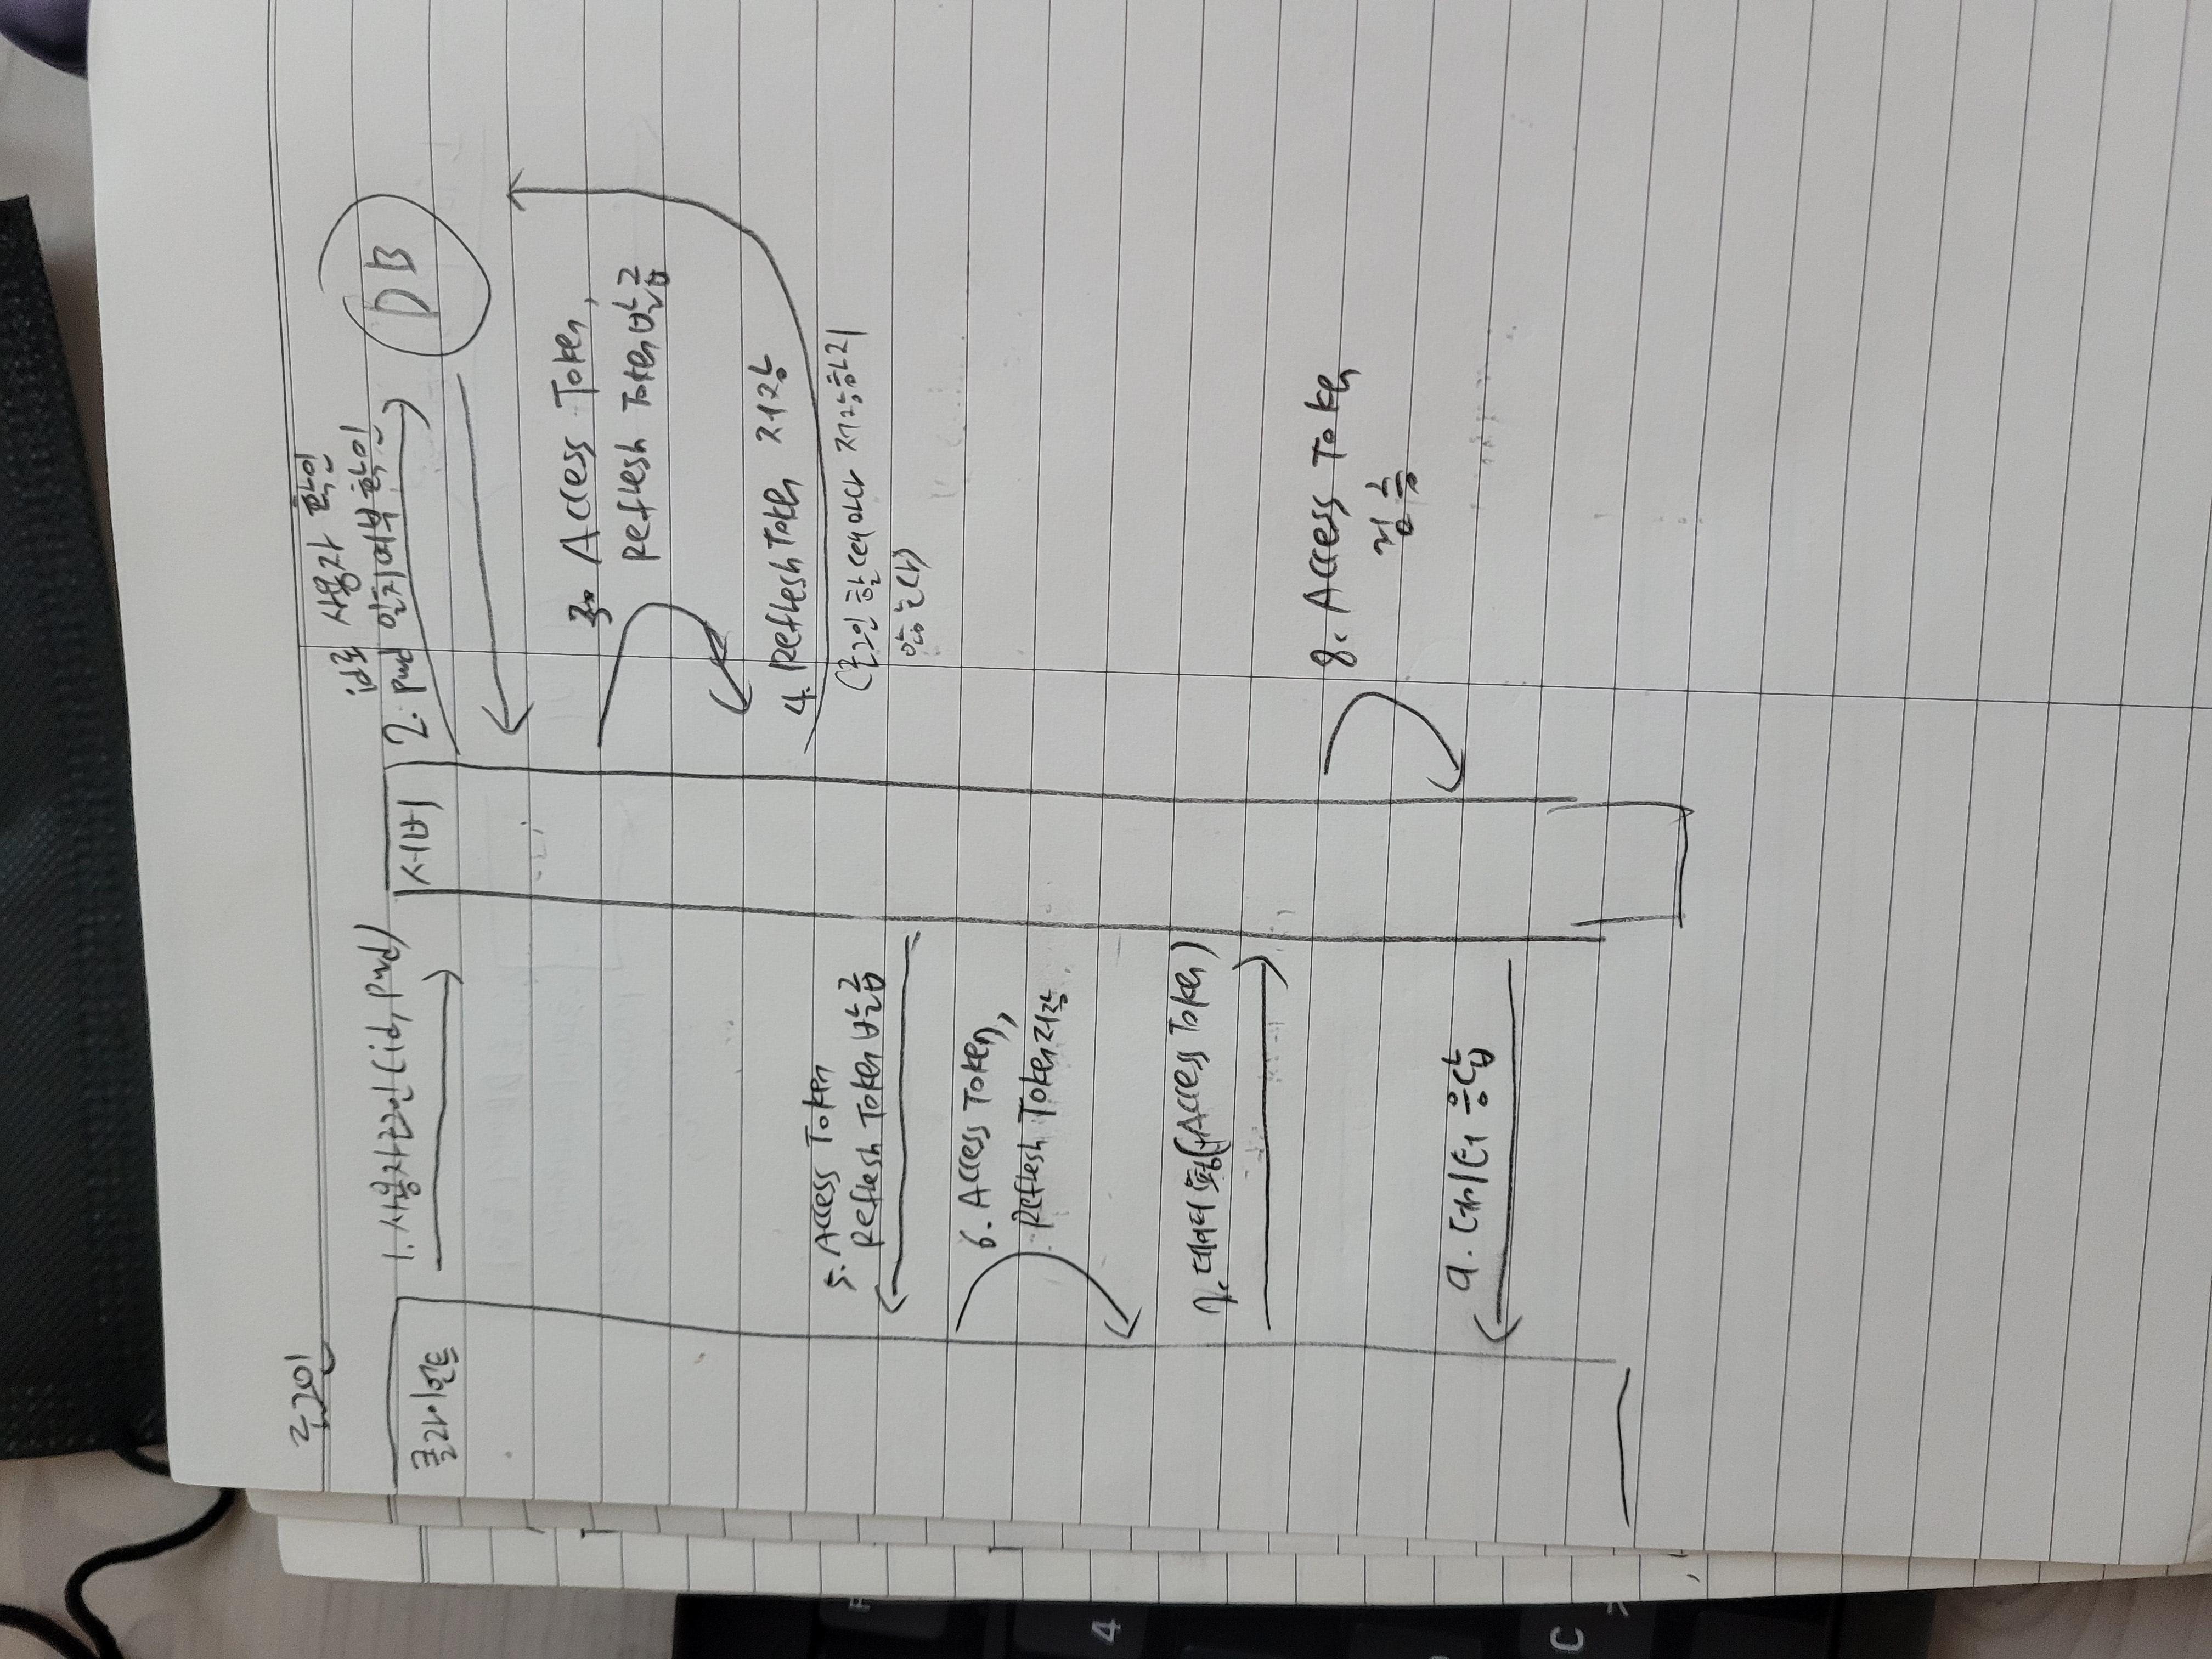 로그인
클라이언트
1. 사용자로그인(id, pwd)
서버
id로 사용자 확인
2. pwd 일치여부 확인
DB
3. Access Token,
Refresh Token 발급
4. Refresh Token 저장
(로그인 할 때마다 저장하지
않는다)
5. Access Token
Refresh Token 발급
6. Access Token,
Refresh Token 저장
7. 데이터 (+Access Token)
8. Access Token
검증
9. 데이터 응답
4
C